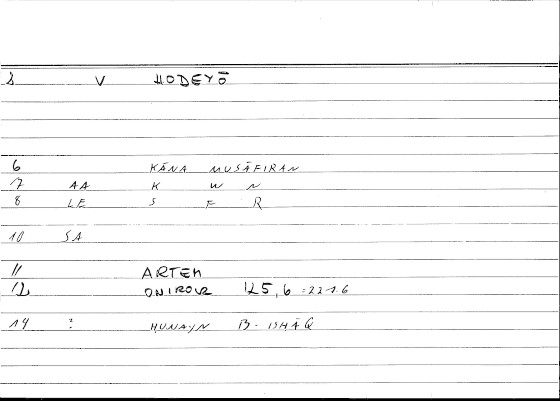 2 V HODEYŌ
6 KĀNA MUSĀFIRAN
7 AA K W N
8 LE S F R
10 SA
11 ARTEM
12 ONIROCR 125,6 =221.6
14 ? HUNAYN B. ISHĀQ